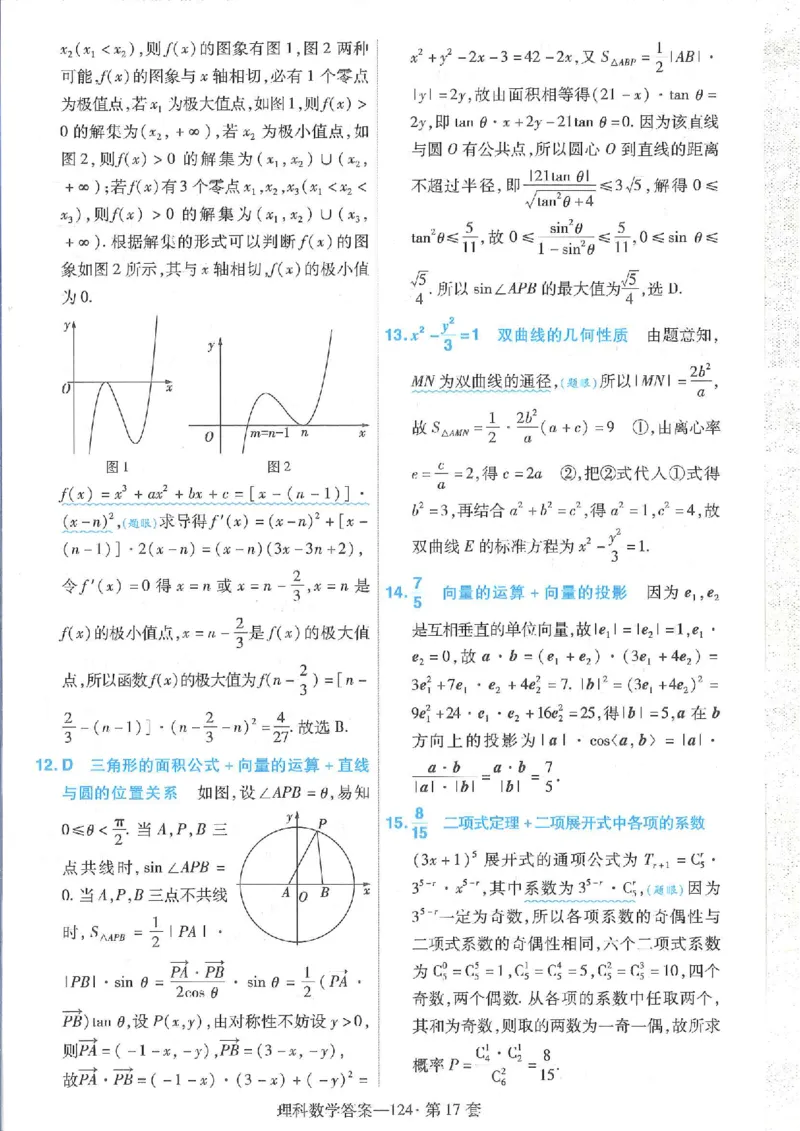 x₂(x₁<x₂),则f(x)的图象有图1,图2 两种
可能.f(x)的图象与x轴相切,必有1个零点
为极值点,若x₁为极大值点,如图1,则f(x)>
0的解集为(x₂,+∞),若x₂为极小值点,如
图2,则f(x)>0 的解集为(x₁,x₂)∪(x₂,
+∞);若f(x)有3个零点x₁,x₂,x₃(x₁<x₂<
x₃),则f(x)>0 的解集为(x₁,x₂)∪(x₃,
+∞).根据解集的形式可以判断f(x)的图
象如图2所示,其与x轴相切,f(x)的极小值
为0.
y
O
x
图1
y
O
m=n-1
n
x
图2
f(x)=x³+ax²+bx+c=[x-(n-1)]·
(x-n)²,(题眼)求导得f′(x)=(x-n)²+[x-
(n-1)]·2(x-n)=(x-n)(3x-3n+2),
令f′(x)=0得x=n或x=n-2/3,x=n是
f(x)的极小值点,x=n-2/3是f(x)的极大值
点,所以函数f(x)的极大值为f(n-2/3)=[n-
2/3-(n-1)]·(n-2/3-n)²=4/27.故选B.
12.D 三角形的面积公式+向量的运算+直线
与圆的位置关系 如图,设∠APB=θ,易知
0≤θ<π/2.当A,P,B三
点共线时,sin∠APB=
0.当A,P,B三点不共线
时,S△APB=1/2|PA|·
y
P
A
O
B
x
|PB|·sin θ=(PA→·PB→)/(2cos θ)·sin θ=1/2(PA→·
PB→)tan θ,设P(x,y),由对称性不妨设y>0,
则PA→=(-1-x,-y),PB→=(3-x,-y),
故PA→·PB→=(-1-x)·(3-x)+(-y)²=
x²+y²-2x-3=42-2x,又S△ABP=1/2|AB|·
|y|=2y,故由面积相等得(21-x)·tan θ=
2y,即tan θ·x+2y-21tan θ=0.因为该直线
与圆O有公共点,所以圆心O到直线的距离
不超过半径,即|21tan θ|/√(tan²θ+4)≤3√5,解得0≤
tan²θ≤5/11,故0≤sin²θ/(1-sin²θ)≤5/11,0≤sin θ≤
√5/4.所以sin∠APB的最大值为√5/4,选D.
13.x²-y²/3=1 双曲线的几何性质 由题意知,
MN为双曲线的通径,(题眼)所以|MN|=2b²/a,
故S△AMN=1/2·2b²/a(a+c)=9 ①,由离心率
e=c/a=2,得c=2a ②,把②式代入①式得
b²=3,再结合a²+b²=c²,得a²=1,c²=4,故
双曲线E的标准方程为x²-y²/3=1.
14.7/5 向量的运算+向量的投影 因为e₁,e₂
是互相垂直的单位向量,故|e₁|=|e₂|=1,e₁·
e₂=0,故a·b=(e₁+e₂)·(3e₁+4e₂)=
3e₁²+7e₁·e₂+4e₂²=7.|b|²=(3e₁+4e₂)²=
9e₁²+24·e₁·e₂+16e₂²=25,得|b|=5,a在b
方向上的投影为|a|·cos⟨a,b⟩=|a|·
(a·b)/(|a|·|b|)=(a·b)/|b|=7/5.
15.8/15 二项式定理+二项展开式中各项的系数
(3x+1)⁵展开式的通项公式为Tᵣ₊₁=C₅ʳ·
3⁵⁻ʳ·x⁵⁻ʳ,其中系数为3⁵⁻ʳ·C₅ʳ,(题眼)因为
3⁵⁻ʳ一定为奇数,所以各项系数的奇偶性与
二项式系数的奇偶性相同,六个二项式系数
为C₅⁰=C₅⁵=1,C₅¹=C₅⁴=5,C₅²=C₅³=10,四个
奇数,两个偶数.从各项的系数中任取两个,
其和为奇数,则取的两数为一奇一偶,故所求
概率P=(C₄¹·C₂¹)/C₆²=8/15.
理科数学答案—124·第17套